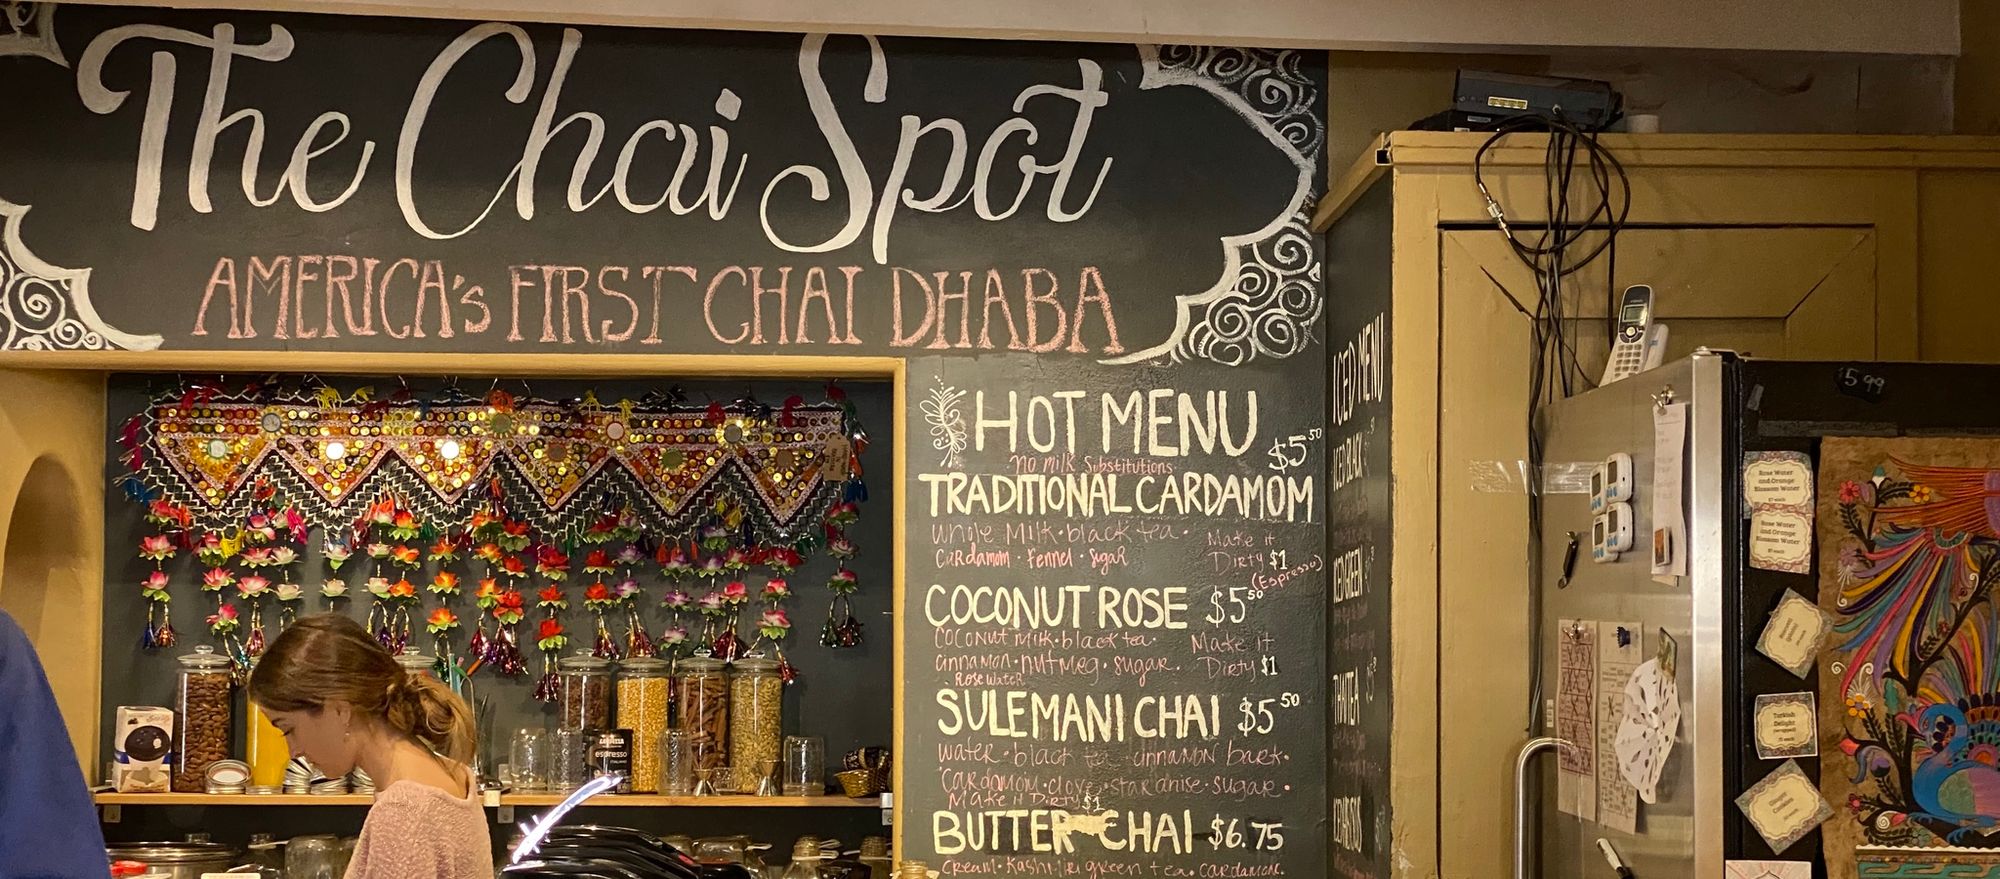 The Chai Spot
AMERICA's FIRST CHAI DHABA
HOT MENU
$5.50
no milk Substitutions
TRADITIONAL CARDAMOM
whole milk • black tea •
Cardamom • fennel • sugar
Make it
Dirty $1
(Espresso)
COCONUT ROSE $5.50
coconut milk • black tea •
cinnamon • nutmeg • sugar •
Rose Water
Make it
Dirty $1
SULEMANI CHAI $5.50
water • black tea • cinnamon bark •
Cardamom • clove • star anise • sugar •
Make it Dirty $1
BUTTER CHAI $6.75
cream • Kashmiri green tea • cardamom.
ICED MENU
ICED BLACK
ICED GREEN
THAI TEA
espresso
ITALIANO
$5.99
Rose Water
and Orange
Blossom Water
$7 each
Rose Water
and Orange
Blossom Water
$7 each
Turkish
Delight